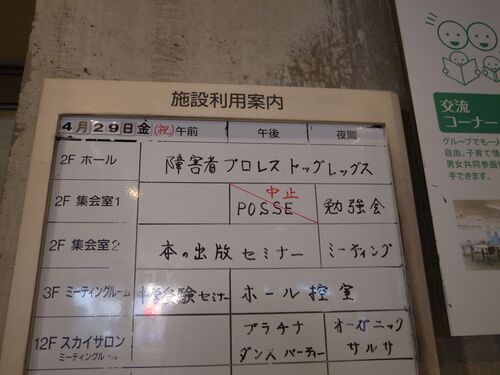 施設利用案内
4月29日金(祝)午前 午後 夜間
2F ホール 障害者プロレス ドッグレッグス
2F 集会室1 中止 POSSE 勉強会
2F 集会室2 本の出版セミナー ミーティング
3F ミーティングルーム 中学受験セミナー ホール控室
12F スカイサロン プラチナ オーガニック
ミーティングルーム ダンスパーティー サルサ
交流
コーナー
グループでも一人
自由。子育て情
男女共同参画
手できます。